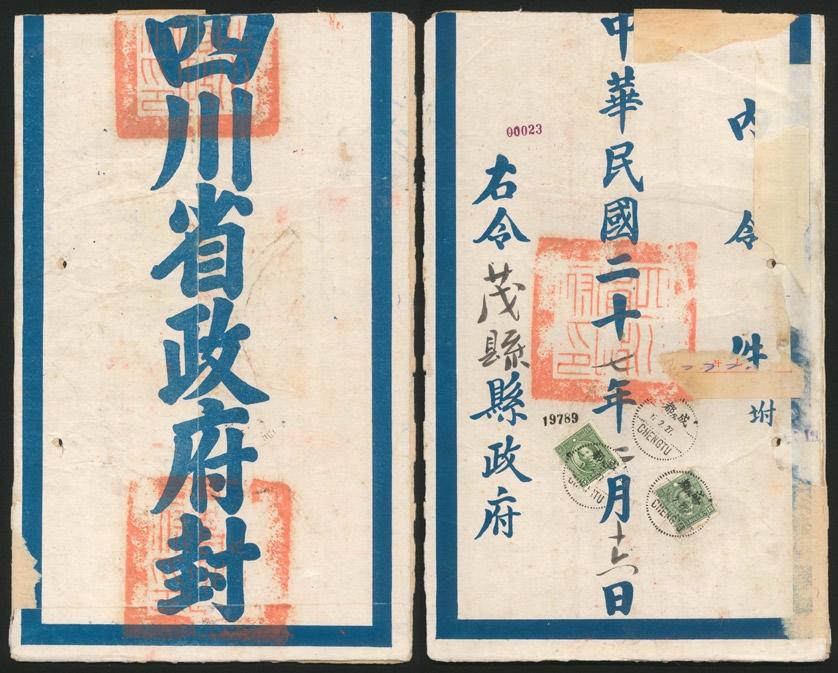 四川省政府封
内令件附
中華民國二十七年二月十六日
00023
右令茂縣縣政府
19789
CHENGTU
CHENGTU